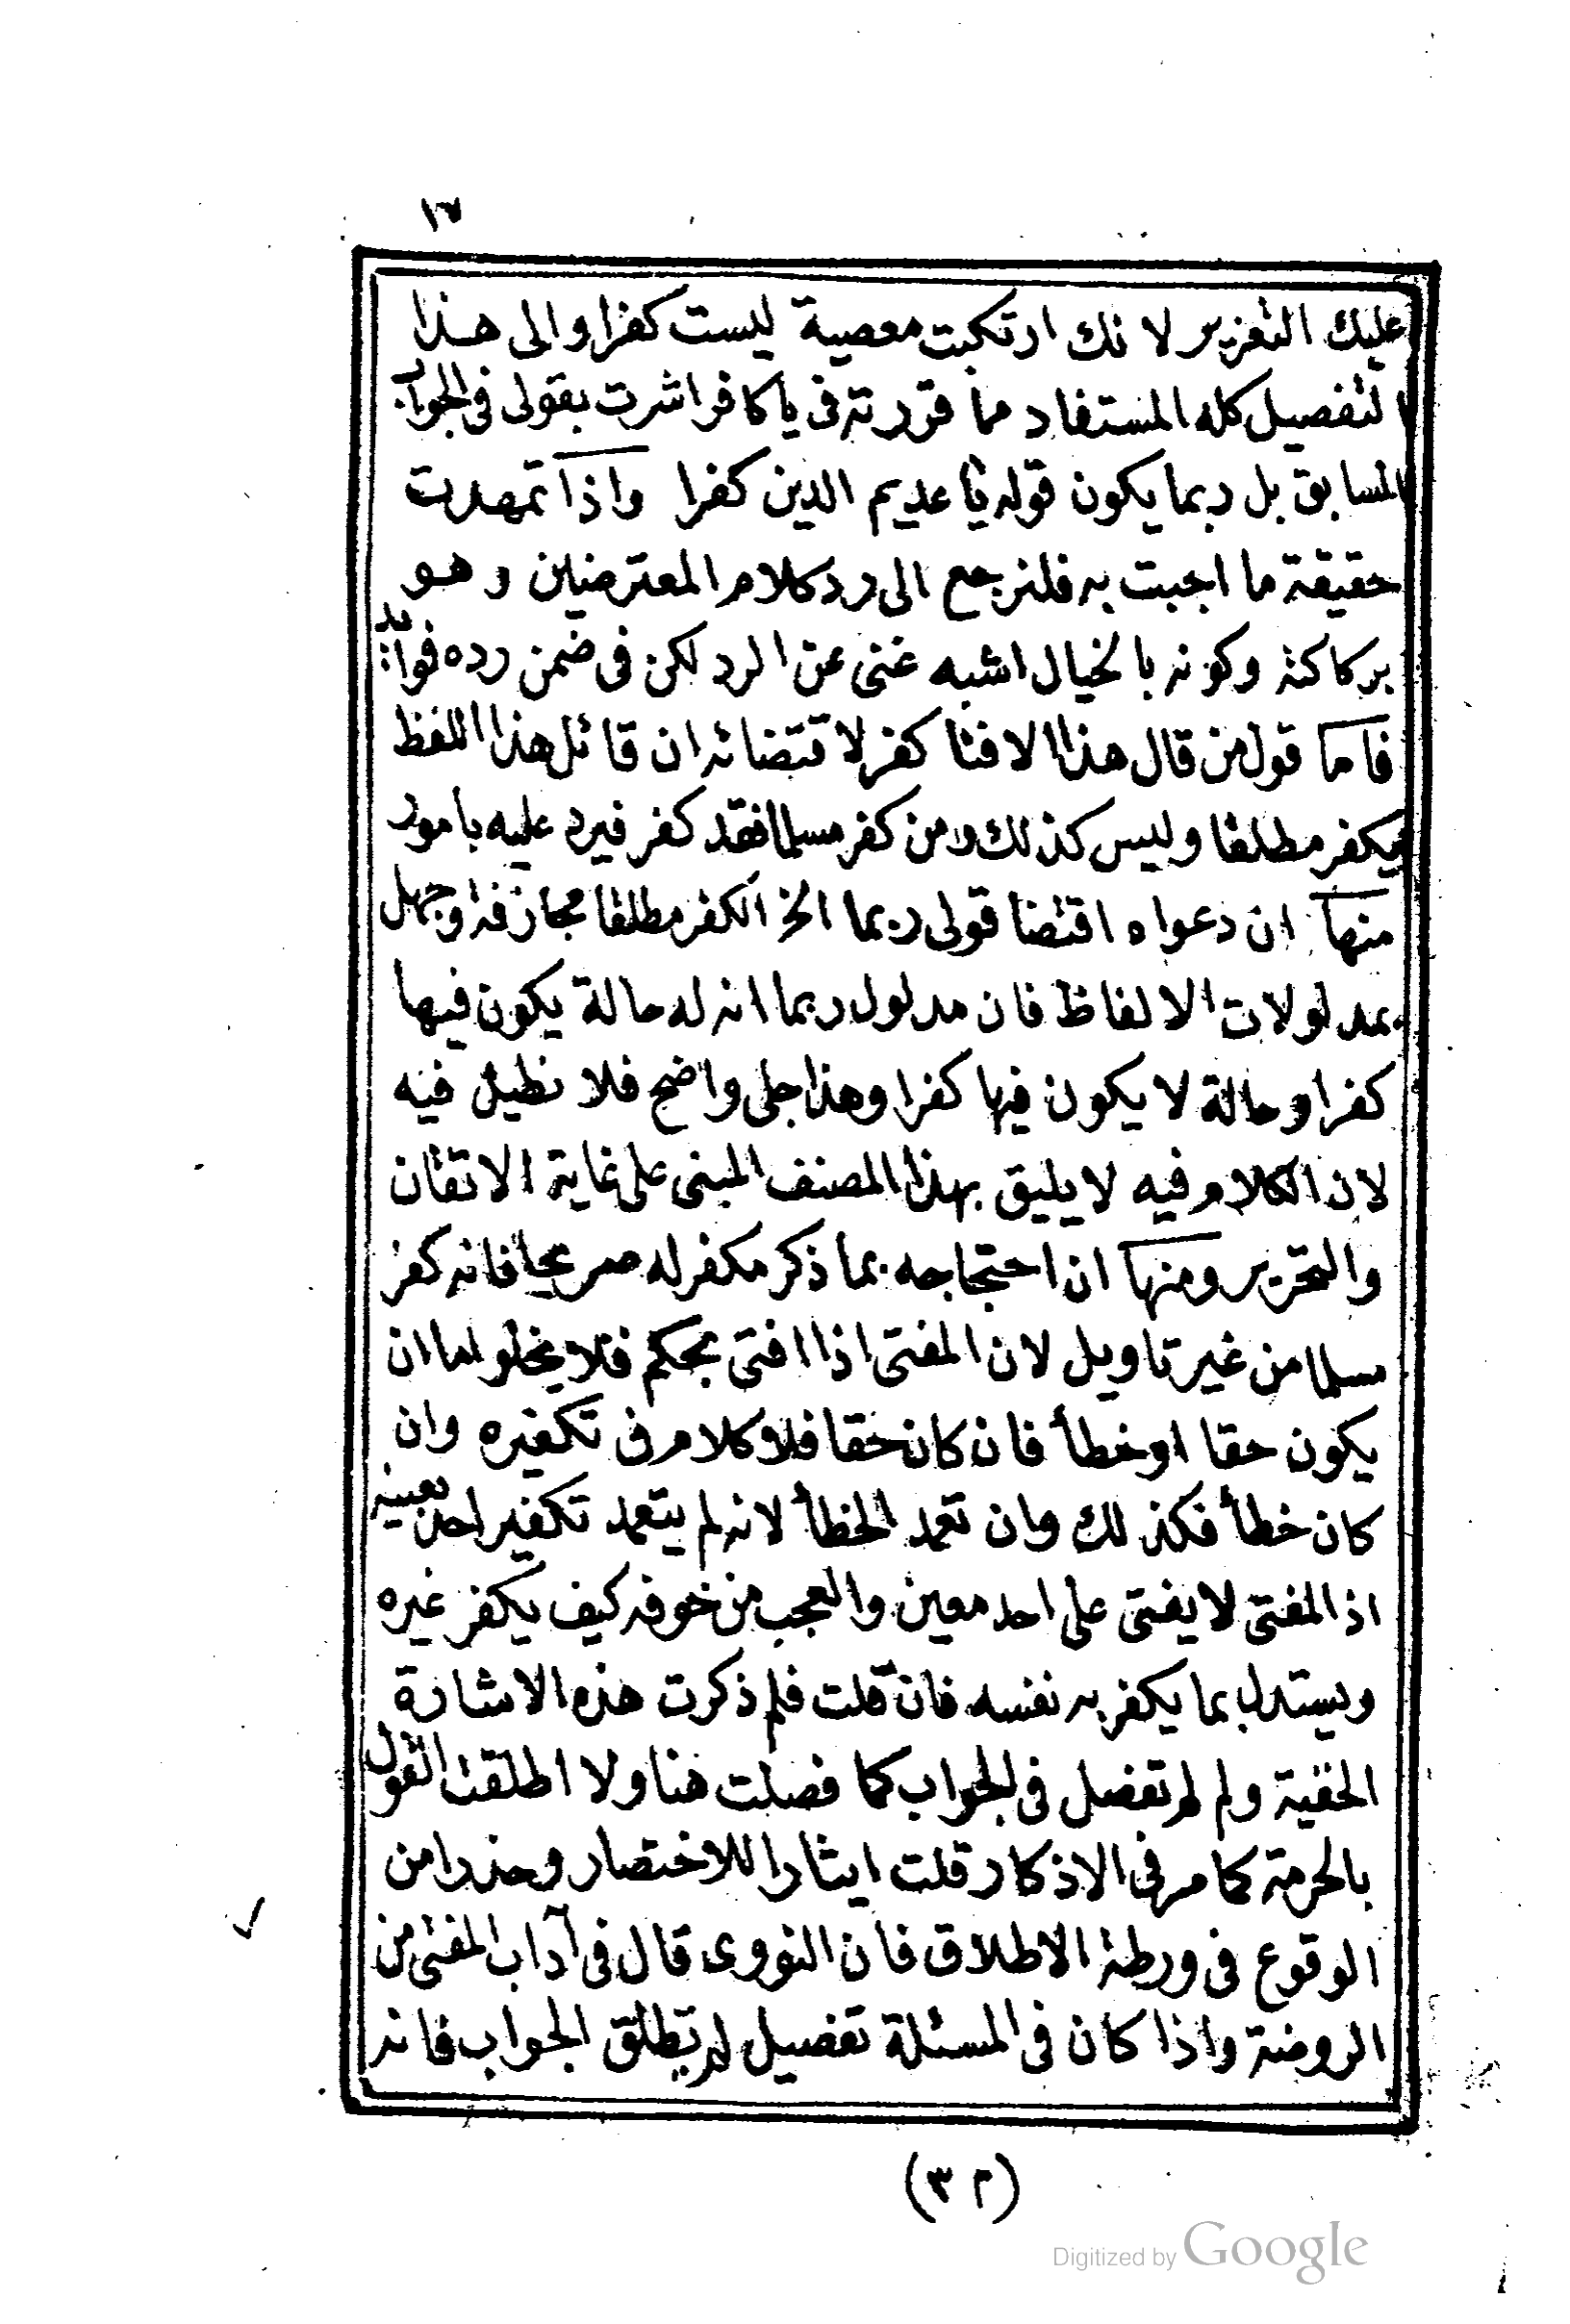 ١٧
عليك التعزير لانك ارتكبت معصية ليست كفرا والى هذا
التفصيل كله المستفاد مما قررته فى يا كافر اشرت بقولى فى الجواب
السابق بل ربما يكون قوله يا عديم الدين كفرا واذا تمهدت
حقيقة ما اجبت به فلنرجع الى رد كلام المعترضين وهو
بركاكته وكونه بالخيال اشبه غنى عن الرد لكن فى ضمن رده فوائد
فاما قول من قال هذا الافتا كفر لاقتضائه ان قائل هذا اللفظ
يكفر مطلقا وليس كذلك ومن كفر مسلما فقد كفر فيرد عليه بامور
منها ان دعواه اقتضا قولى ربما الخ الكفر مطلقا مجازفة وجهل
بمدلولات الالفاظ فان مدلول ربما انه له حالة يكون فيها
كفرا وحالة لا يكون فيها كفرا وهذا جلى واضح فلا نطيل فيه
لان الكلام فيه لا يليق بهذا المصنف المبنى على غاية الاتقان
والتحرير ومنها ان احتجاجه بما ذكر مكفر له صريحا فانه كفر
مسلما من غير تاويل لان المفتى اذا افتى بحكم فلا يخلو اما ان
يكون حقا او خطأ فان كان حقا فلا كلام فى تكفيره وان
كان خطأ فكذلك وان تعمد الخطأ لانه لم يتعمد تكفير احد بعينه
اذ المفتى لا يفتى على احد معين والعجب من خوفه كيف يكفر غيره
ويستدل بما يكفر به نفسه فان قلت فلم ذكرت هذه الاشارة
الخفية ولم لم تفصل فى الجواب كما فصلت هنا ولا اطلقت القول
بالحرمة كما مر فى الاذكار قلت ايثارا للاختصار وحذرا من
الوقوع فى ورطة الاطلاق فان النووى قال فى آداب المفتى من
الروضة واذا كان فى المسئلة تفصيل لم يطلق الجواب فانه
(٣ م)
Digitized by Google